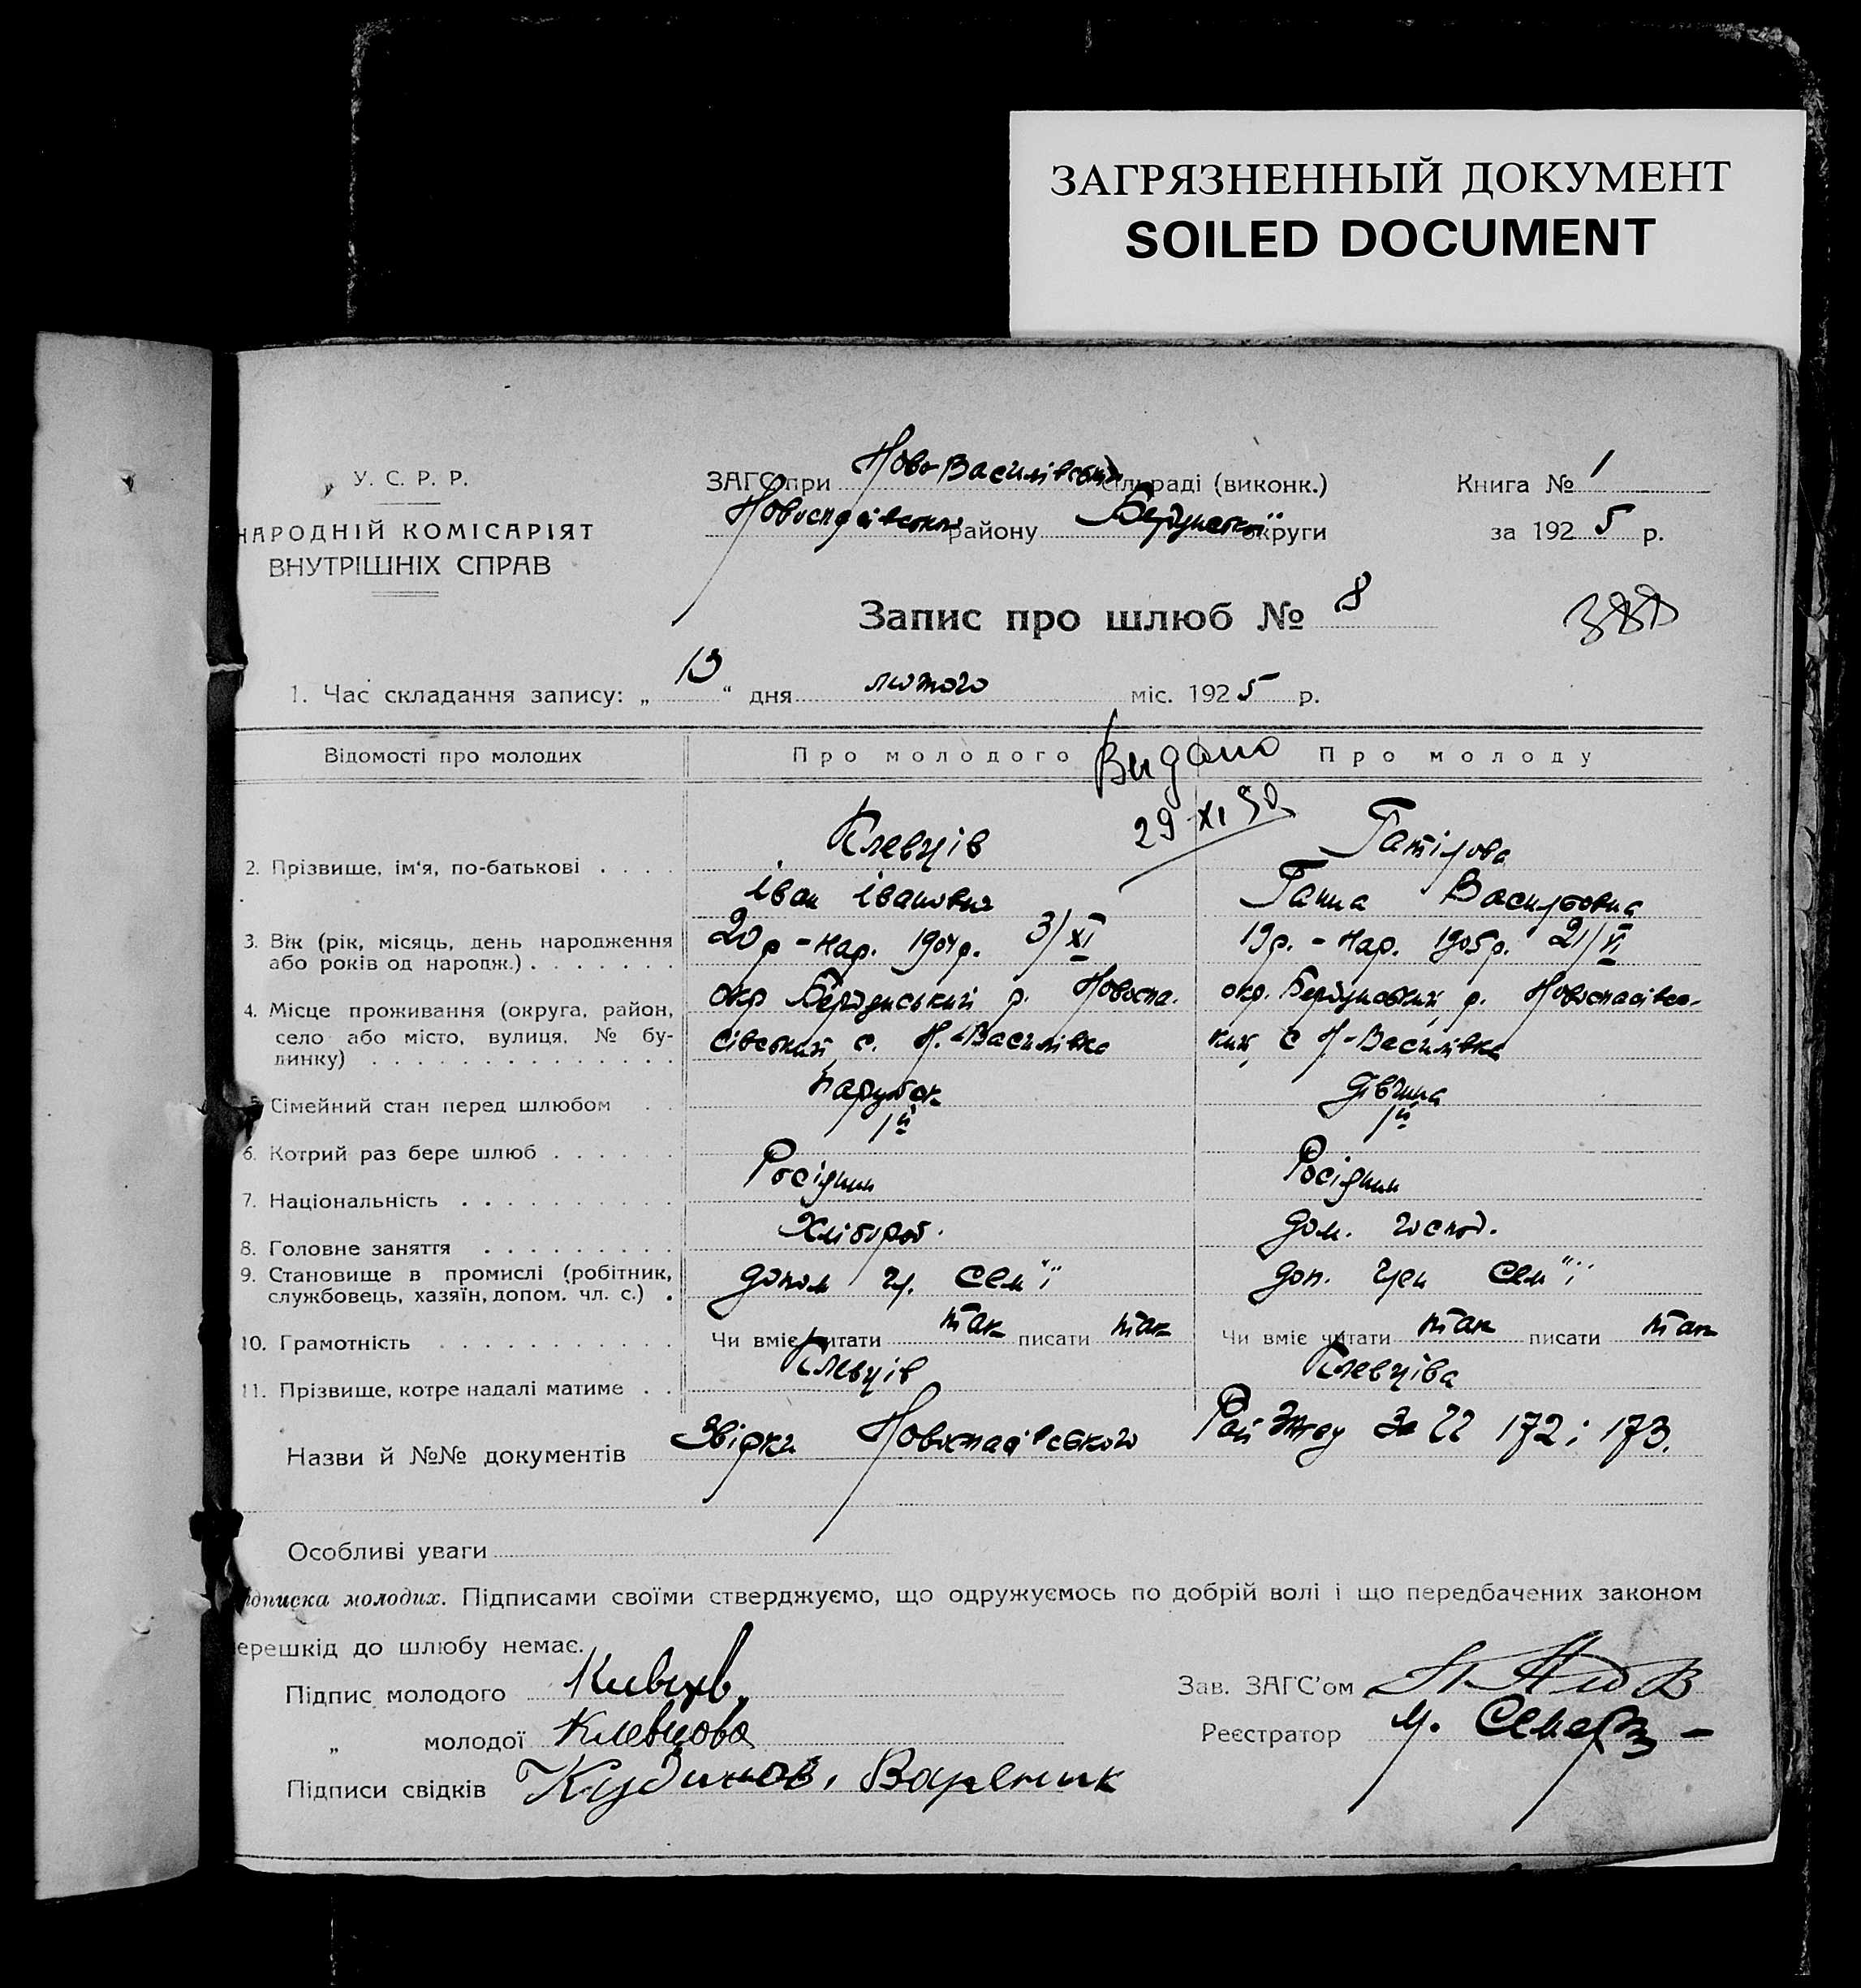 ЗАГРЯЗНЕННЫЙ ДОКУМЕНТ
SOILED DOCUMENT
У. С. Р. Р.
НАРОДНІЙ КОМІСАРІЯТ
ВНУТРІШНІХ СПРАВ
ЗАГС при Ново-Василівській сільраді (виконк.)
Новоспасівського району Бердянської округи
Книга № 1
за 1925 р.
Запис про шлюб № 8
388
1. Час складання запису: „ “ дня лютого міс. 1925 р.
Відомості про молодих Про молодого Про молоду
Видано
29 XI 50
2. Прізвище, ім'я, по-батькові . . . . Клевців
Іван Іванович Ганна Василівна
3. Вік (рік, місяць, день народження або років од народж.) . . . . . . . 20 р - нар. 1904р. 3/XI 19р. - нар. 1905р. 21/VI
4. Місце проживання (округа, район, село або місто, вулиця, № будинку) . . . . . . . . . . . . . . окр Бердянський р. Новоспа- окр. Бердянський, р. Новоспасівсь-
сівський, с. Н.-Василівка кий, с Н-Василівка
5. Сімейний стан перед шлюбом . . Парубок дівчина
6. Котрий раз бере шлюб . . . . . . 1й 1й
7. Національність . . . . . . . . . . Росіянин Росіянин
8. Головне заняття . . . . . . . . . Хлібороб. дом. господ.
9. Становище в промислі (робітник, службовець, хазяїн, допом. чл. с.) . допом чл. сем"ї доп. член сем"ї
10. Грамотність . . . . . . . . . . . Чи вміє читати так писати так Чи вміє читати так писати так
11. Прізвище, котре надалі матиме . . Клевців Клевціва
Назви й №№ документів Новоспасівського за 172 і 173.
Особливі уваги
ідписка молодих. Підписами своїми стверджуємо, що одружуємось по добрій волі і що передбачених законом
ерешкід до шлюбу немає.
Підпис молодого Клевцов
Зав. ЗАГС'ом
„ молодої Клевцова
Реєстратор
Підписи свідків Кудинов, Вареник